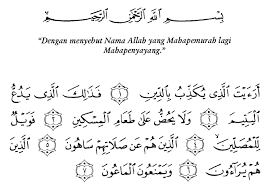 بِسْمِ اللهِ الرَّحْمٰنِ الرَّحِيْمِ
“Dengan menyebut Nama Allah yang Mahapemurah lagi
Mahapenyayang.”
أَرَءَيْتَ الَّذِى يُكَذِّبُ بِالدِّينِ ﴿١﴾ فَذَٰلِكَ الَّذِى يَدُعُّ
الْيَتِيمَ ﴿٢﴾ وَلَا يَحُضُّ عَلَىٰ طَعَامِ الْمِسْكِينِ ﴿٣﴾ فَوَيْلٌ
لِّلْمُصَلِّينَ ﴿٤﴾ الَّذِينَ هُمْ عَن صَلَاتِهِمْ سَاهُونَ ﴿٥﴾ الَّذِينَ
هُمْ يُرَآءُونَ ﴿٦﴾ وَيَمْنَعُونَ الْمَاعُونَ ﴿٧﴾